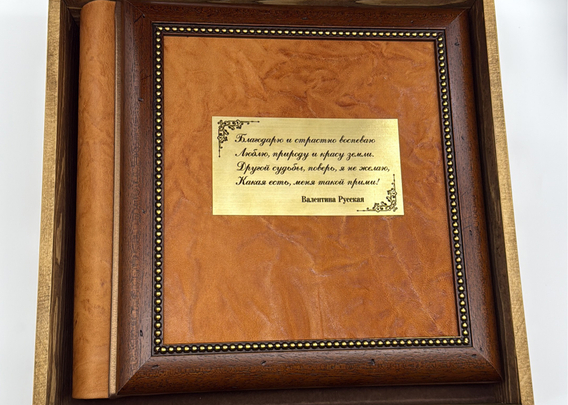 Благодарю и страстно воспеваю
Люблю, природу и красу земли.
Другой судьбы, поверь, я не желаю,
Какая есть, меня такой прими!
Валентина Русская